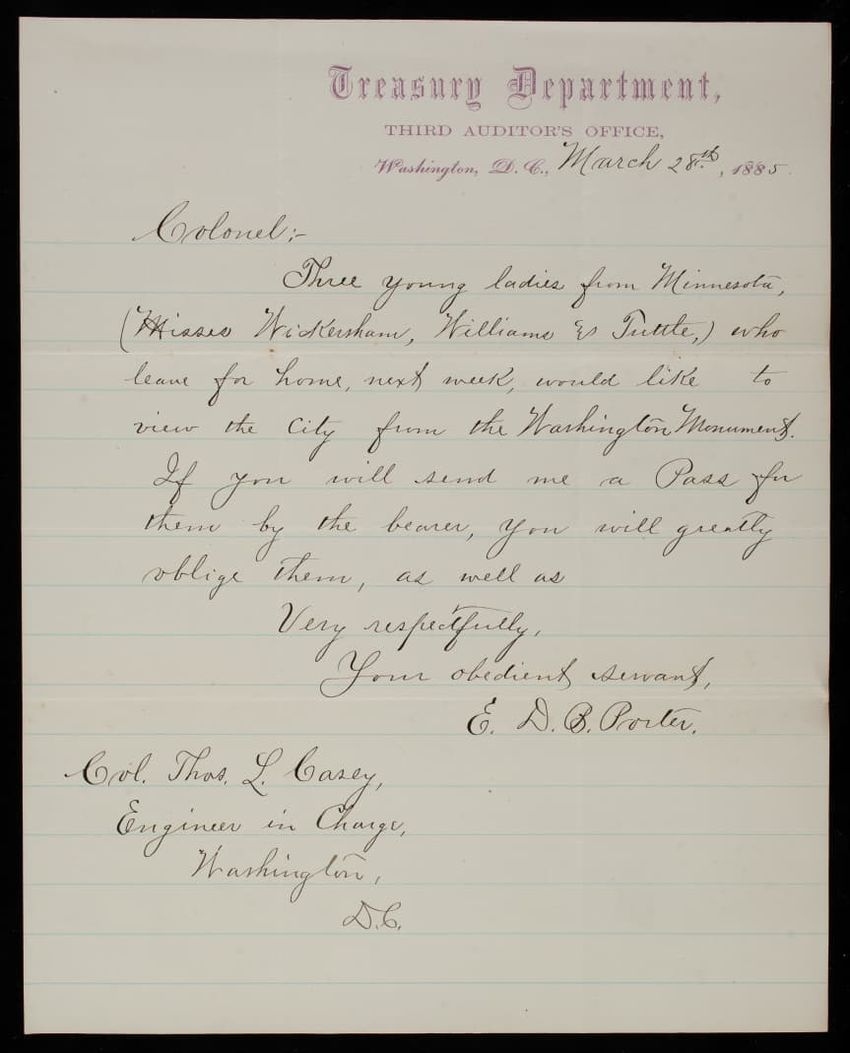 Treasury Department,
THIRD AUDITOR'S OFFICE,
Washington, D. C., March 28th, 1885.
Colonel:-
Three young ladies from Minnesota,
(Misses Wickersham, Williams & Tuttle,) who
leave for home, next week, would like to
view the City from the Washington Monument.
If you will send me a Pass for
them by the bearer, you will greatly
oblige them, as well as
Very respectfully,
Your obedient servant,
E. D. B. Porter.
Col. Thos. L. Casey,
Engineer in Charge,
Washington,
D.C.